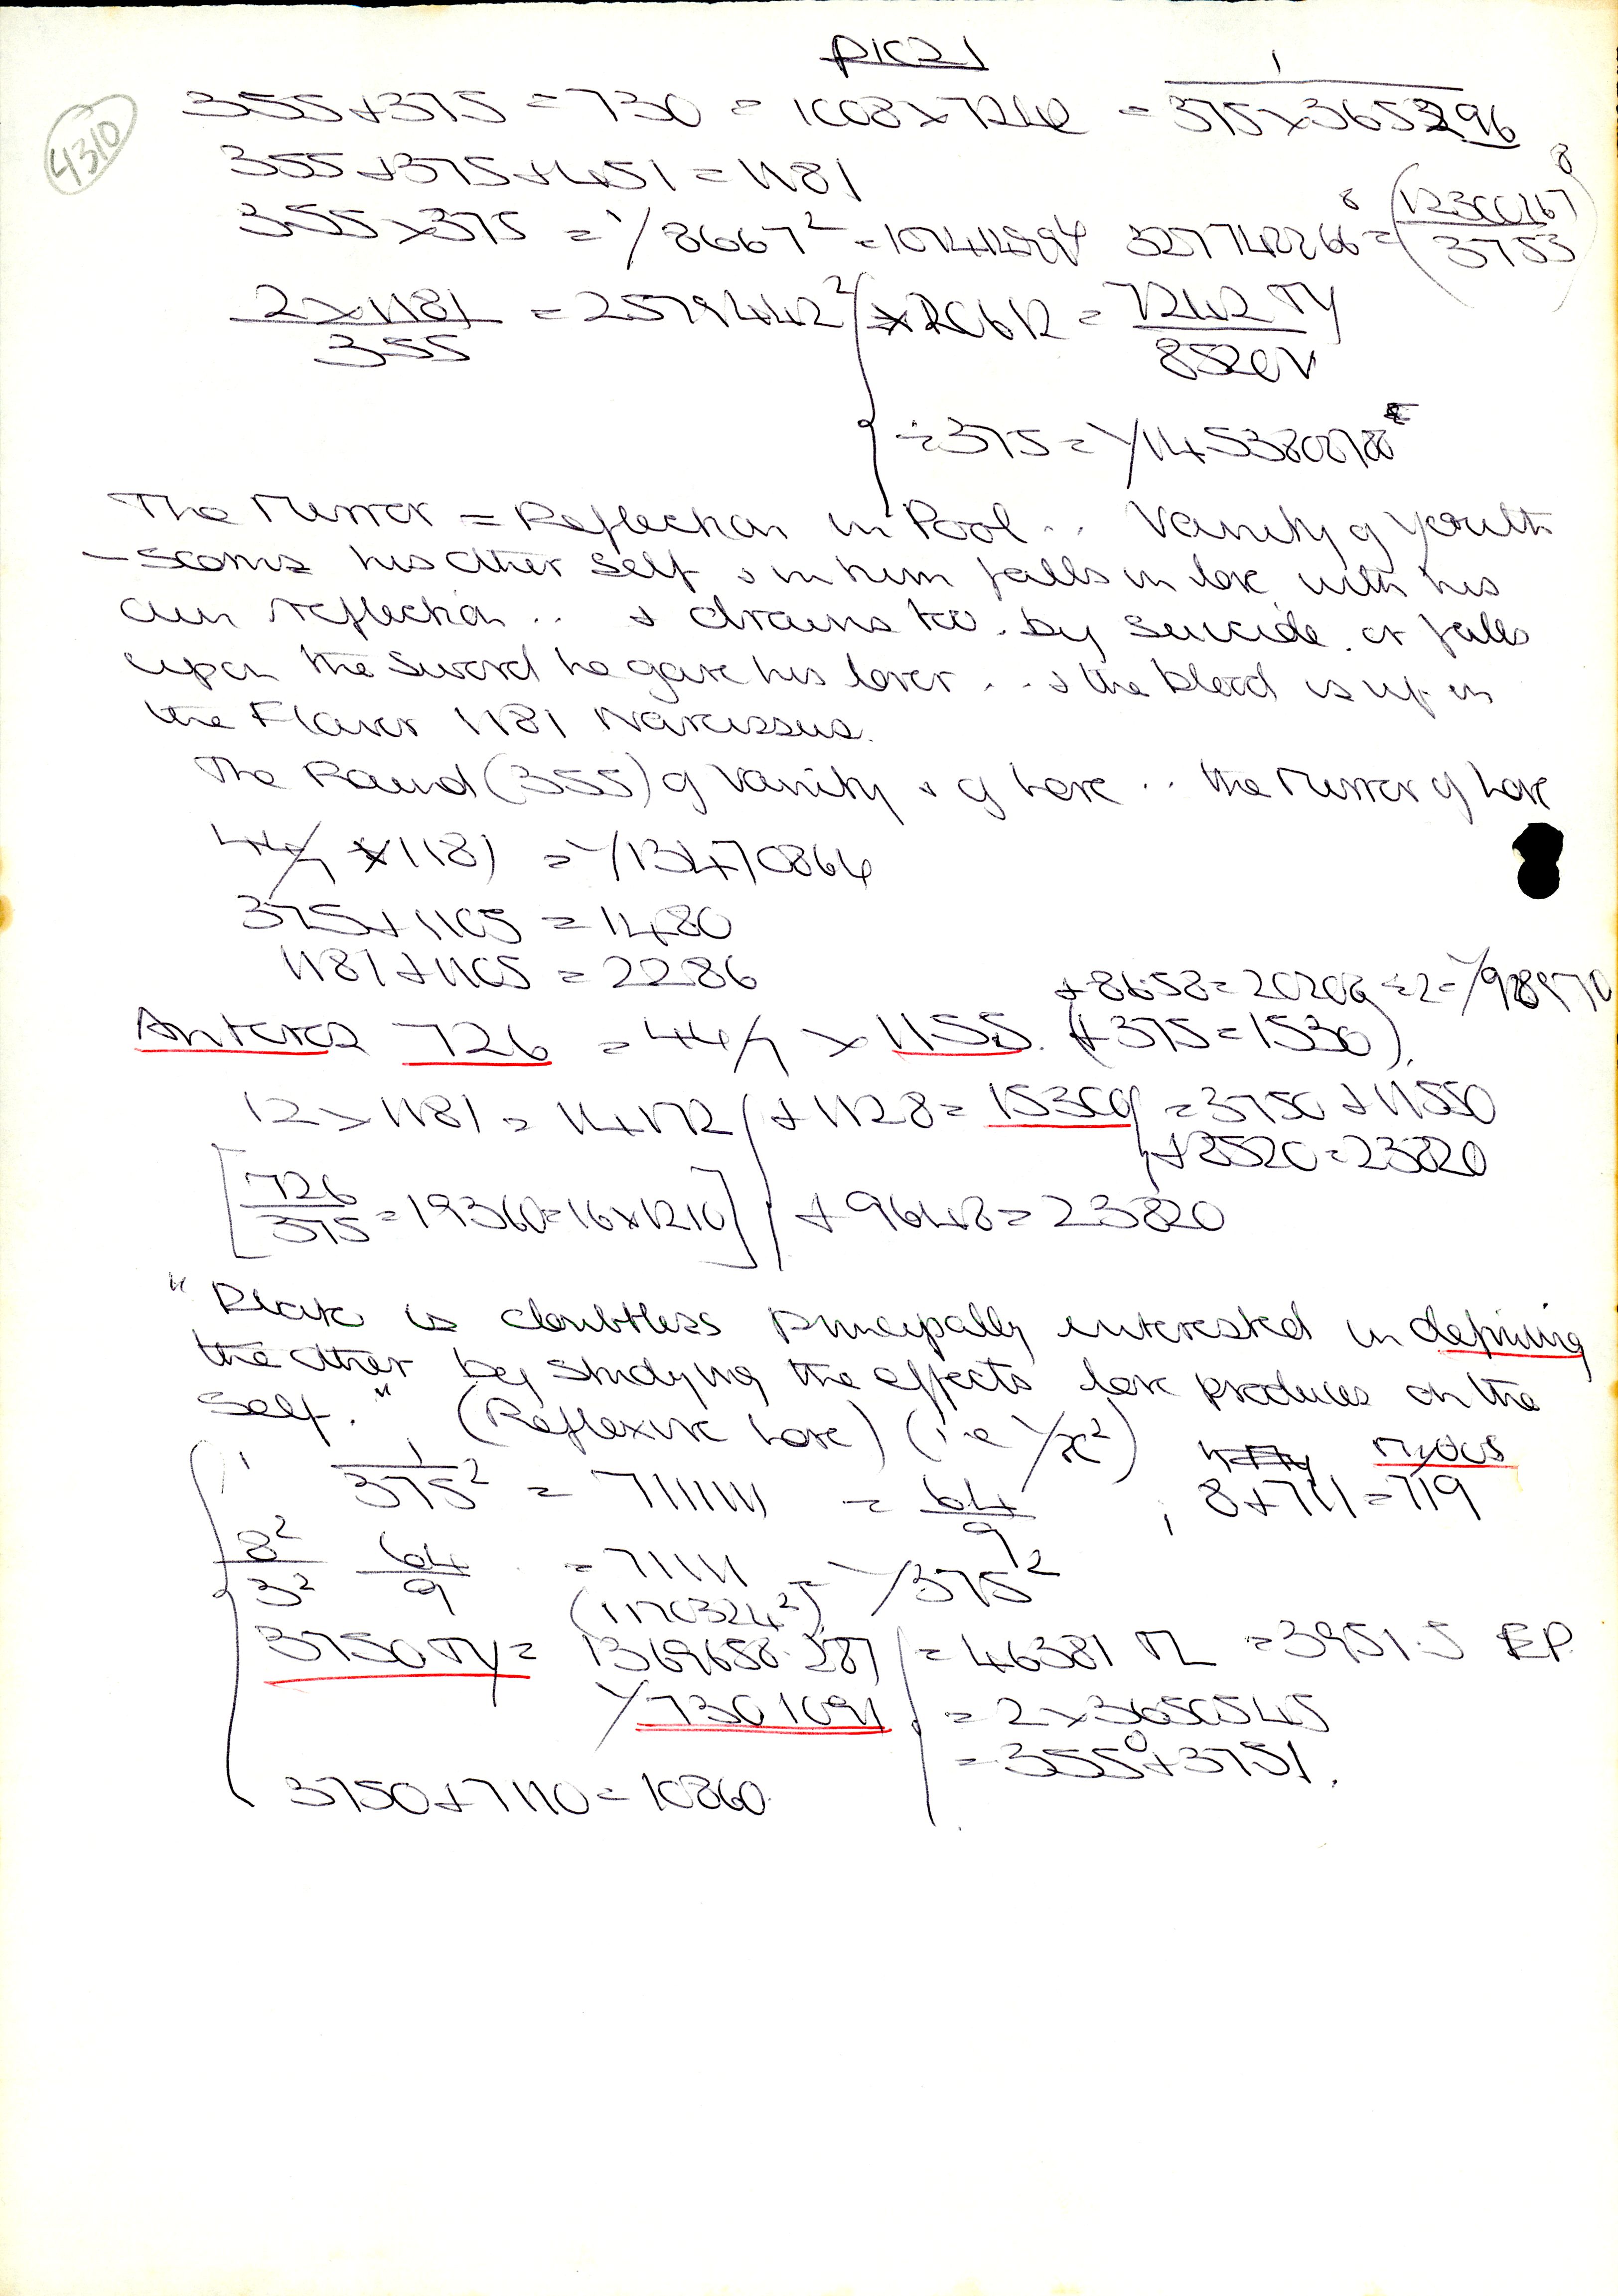 4310
355+375 = 730 = 1008 x 7242 = 1/375 x 365296
355+375+451 = 1181
355 x 375 = 1/8667² = 107414894 327742266⁸ = (12300267/3753)⁸
2 x 1181/355 = 2579442² x 20612 = 7242 TY/8520V
÷ 375 = 1/1453808788
The Mirror = Reflection in Pool .. Vanity of Youth
- scorns his other self & in turn falls in love with his
own reflection .. & drowns too. by suicide. or falls
upon the sword he gave his lover ... & the blood is up in
the Flower 1181 Narcissus.
The Round (355) of Vanity & of Love .. the Mirror of Love
44/7 x 1181 = 1/13470864
375+1105 = 1480
1181+1105 = 2286
+8658 = 20208 ÷2 =
Anteros 726 = 44/7 x 1155. (+375 = 1530).
12 x 1181 = 14172 +1128 = 15300 = 3750 + 11550
+8520 = 23820
[726/375 = 19360 = 16x1210] +9648 = 23820
"Plato is doubtless principally interested in defining
the other by studying the effects love produces on the
self." (Reflexive Love) (i.e 1/x²)
1/375² = 7111111 = 64/9 ; 8+711 = 719
8²/3² 64/9 = 71111 = 1/375²
(1170324²)
3750 TY = 1369658.287 = 46381 = 3951.5 E.P.
1/7301091 = 2x3650545
= 355⁰+3751.
3750+7110 = 10860.